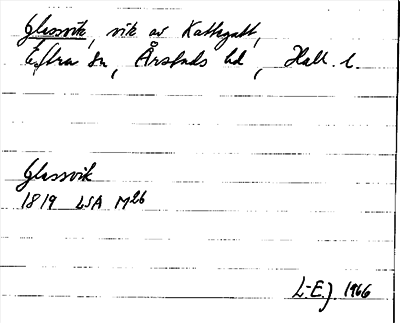 Glassvik, vik av Kattegatt,
Eftra sn, Årstads hd, Hall. l.
Glassvik
1819 LSA M26
L-E.J. 1966